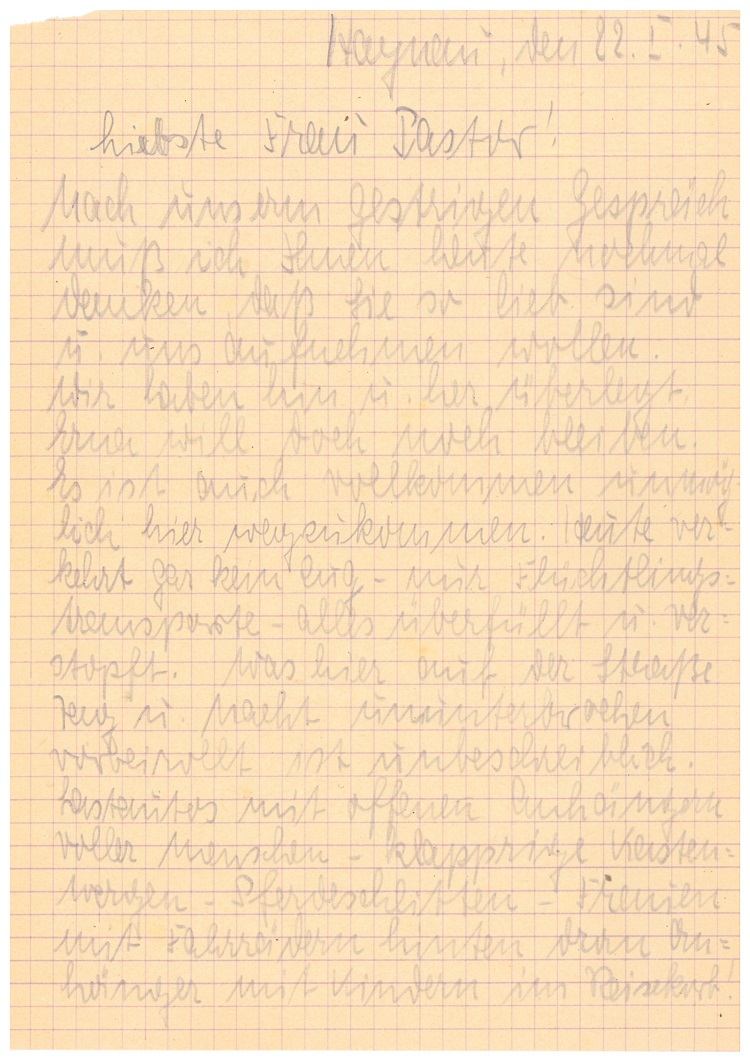 Haynau, den 22. I. 45
Liebste Frau Pastor!
Nach unserm gestrigen Gespräch
muß ich Ihnen heute nochmal
danken, daß Sie so lieb sind
u. uns aufnehmen wollen.
Wir haben hin u. her überlegt.
Erna will doch noch bleiben.
Es ist auch vollkommen unmög-
lich hier wegzukommen. Heute ver-
kehrt gar kein Zug – nur Flüchtlings=
transporte – alles überfüllt u. ver=
stopft. Was hier auf der Straße
Tag u. Nacht ununterbrochen
vorbeirollt ist unbeschreiblich.
Lastautos mit offenen Anhängern
voller Menschen – klapprige Kasten=
wagen – Pferdeschlitten – Frauen
mit Fahrrädern hinten dran An=
hänger mit Kindern im Reisekorb!